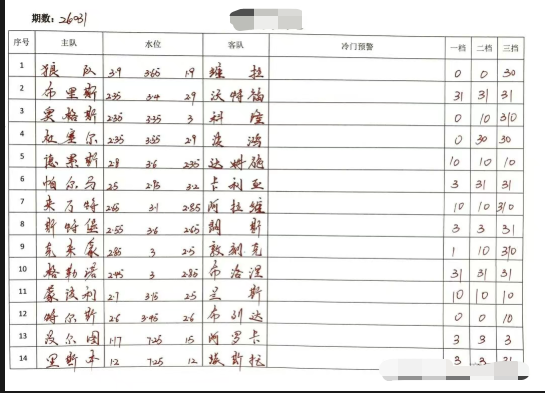 期数: 26031
序号 主队 水位 客队 冷门预警 一档 二档 三档
1 狼队 3.9 3.65 1.9 维拉 0 0 30
2 布里斯 2.35 3.4 2.9 沃特福 31 31 31
3 奥格斯 2.35 3.35 3 科隆 0 10 310
4 杜塞尔 2.35 3.55 2.9 汉鸿 0 30 30
5 德累斯 2.8 3.6 2.35 达姆施 10 10 10
6 帕尔马 2.5 2.95 3.2 卡利亚 3 31 31
7 莱万特 2.65 3.1 2.85 阿拉维 10 10 310
8 斯特堡 2.55 3.6 2.65 朗斯 3 3 31
9 克莱蒙 2.85 3 2.5 敦刻克 1 10 310
10 格勒诺 2.45 3 2.85 布洛涅 31 31 31
11 蒙彼利 2.7 3.15 2.5 兰斯 10 10 10
12 特尔斯 2.6 3.45 2.6 布列达 0 0 10
13 波尔图 1.17 7.25 15 阿罗卡 3 3 3
14 里斯本 1.2 7.25 12 埃斯托 3 3 31